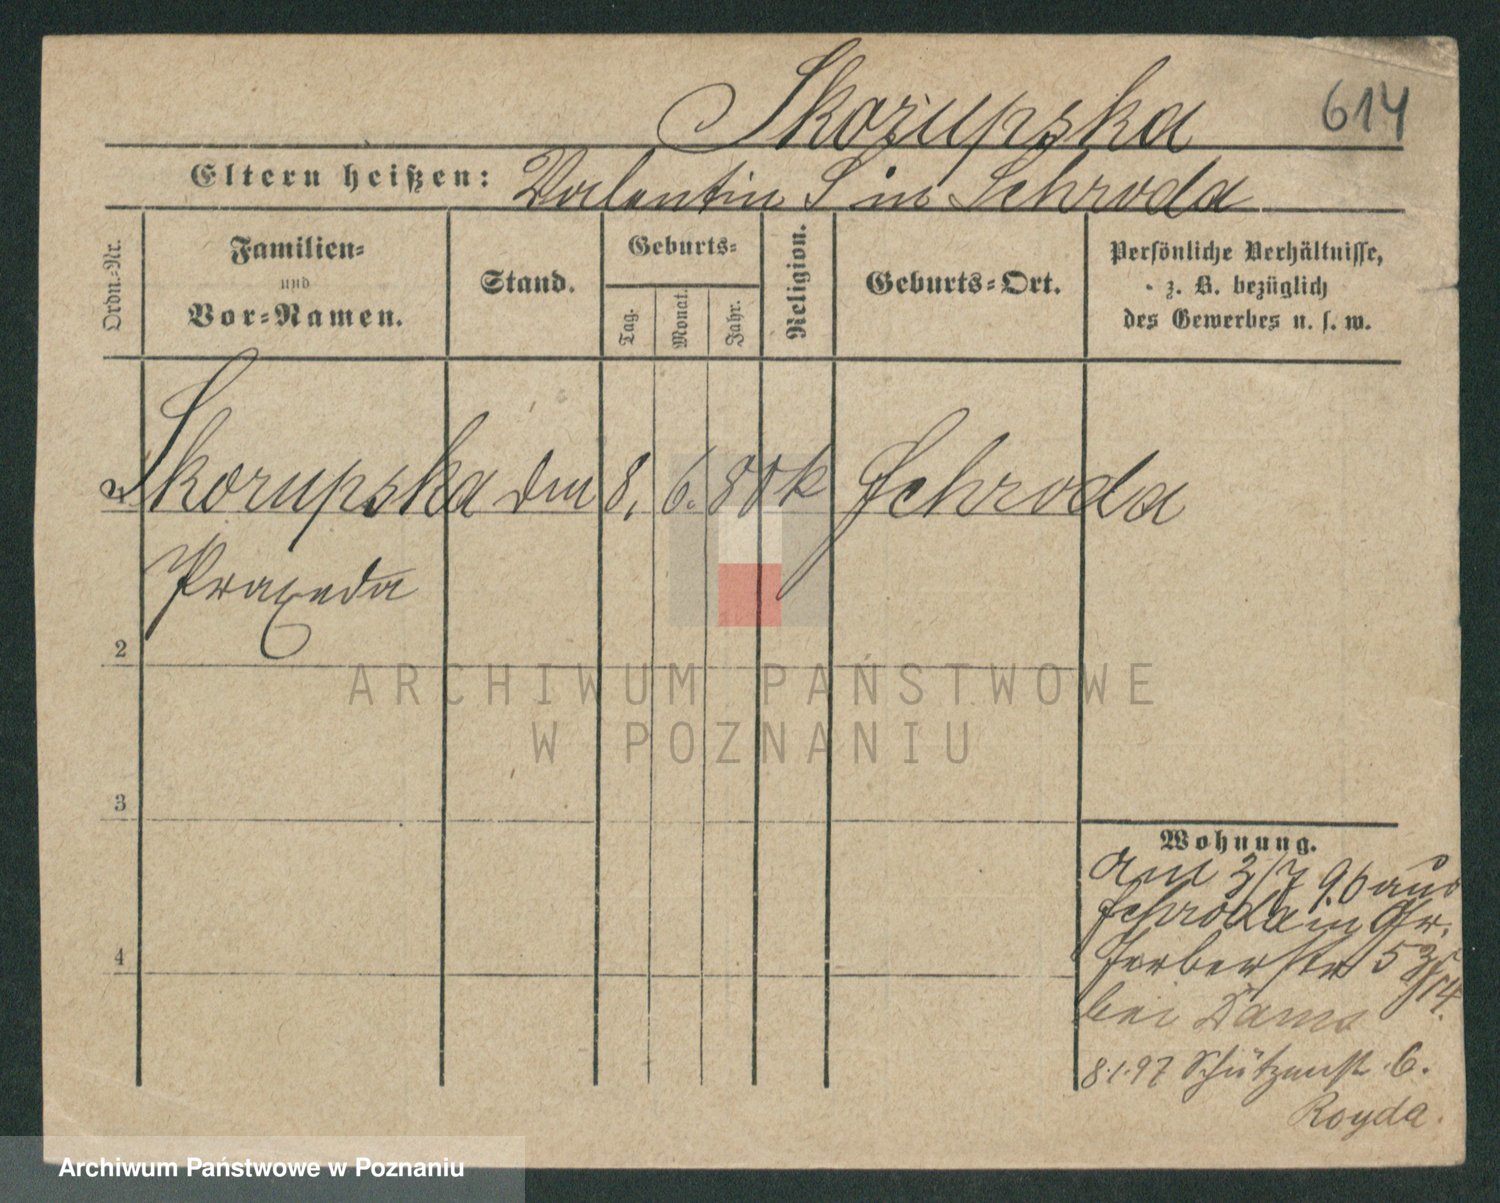 Skorupska
614
Eltern heißen: Valentin S in Schroda
Ordn.-Nr.
Familien-
und
Vor-Namen.
Stand.
Geburts-
Tag.
Monat.
Jahr.
Religion.
Geburts-Ort.
Persönliche Verhältnisse,
z. B. bezüglich
des Gewerbes u. s. w.
Skorupska 8. 6. 80 k Schroda
Praxeda
2
3
4
Wohnung.
am 3/7 96 aus
Schroda in Gr.
Gerberstr 53/
bei
8.1.97 Schützenstr. 6.
Royda.
ARCHIWUM PAŃSTWOWE
W POZNANIU
Archiwum Państwowe w Poznaniu